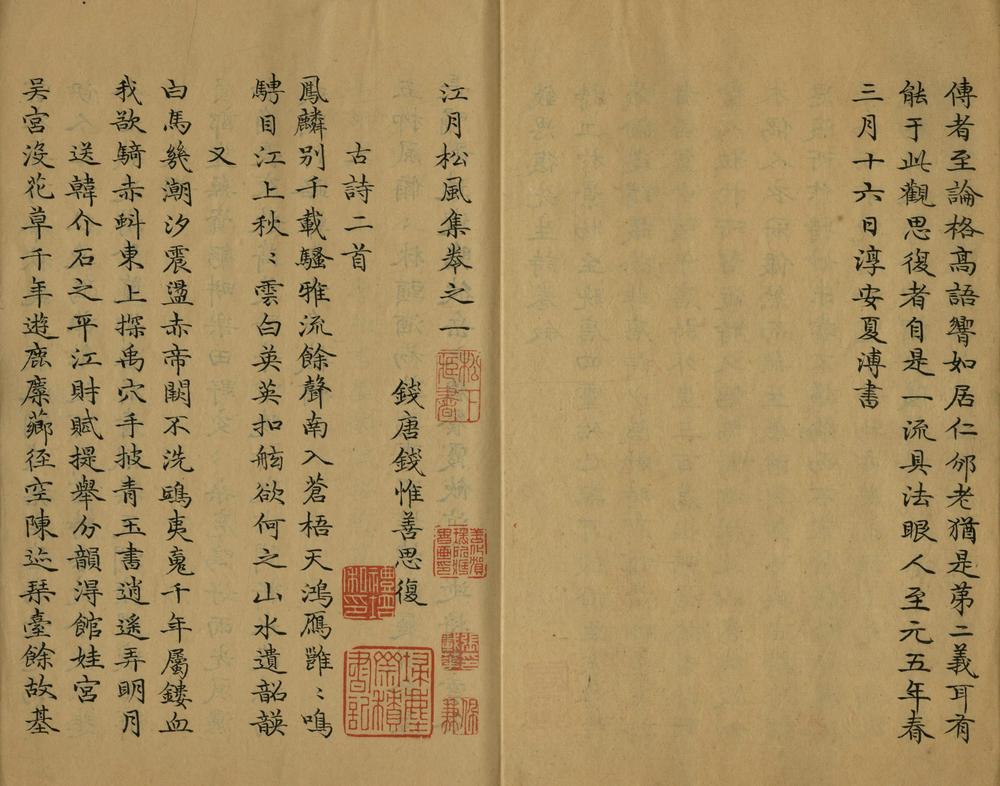 傳者至論格高語響如居仁邠老猶是第二義耳有
能于此觀思復者自是一流具法眼人至元五年春
三月十六日淳安夏溥書
江月松風集卷之一
錢唐錢惟善思復
古詩二首
鳳麟別千載騷雅流餘聲南入蒼梧天鴻鴈雝〻鳴
騁目江上秋〻雲白英英扣舷欲何之山水遺韶韺
又
白馬幾潮汐震盪赤帝闕不洗鴟夷䰟千年屬鏤血
我欲騎赤蚪東上探禹穴手披青玉書逍遙弄明月
送韓介石之平江財賦提舉分韻得館娃宮
吳宮沒花草千年遊鹿麋薌徑空陳迹琹臺餘故基